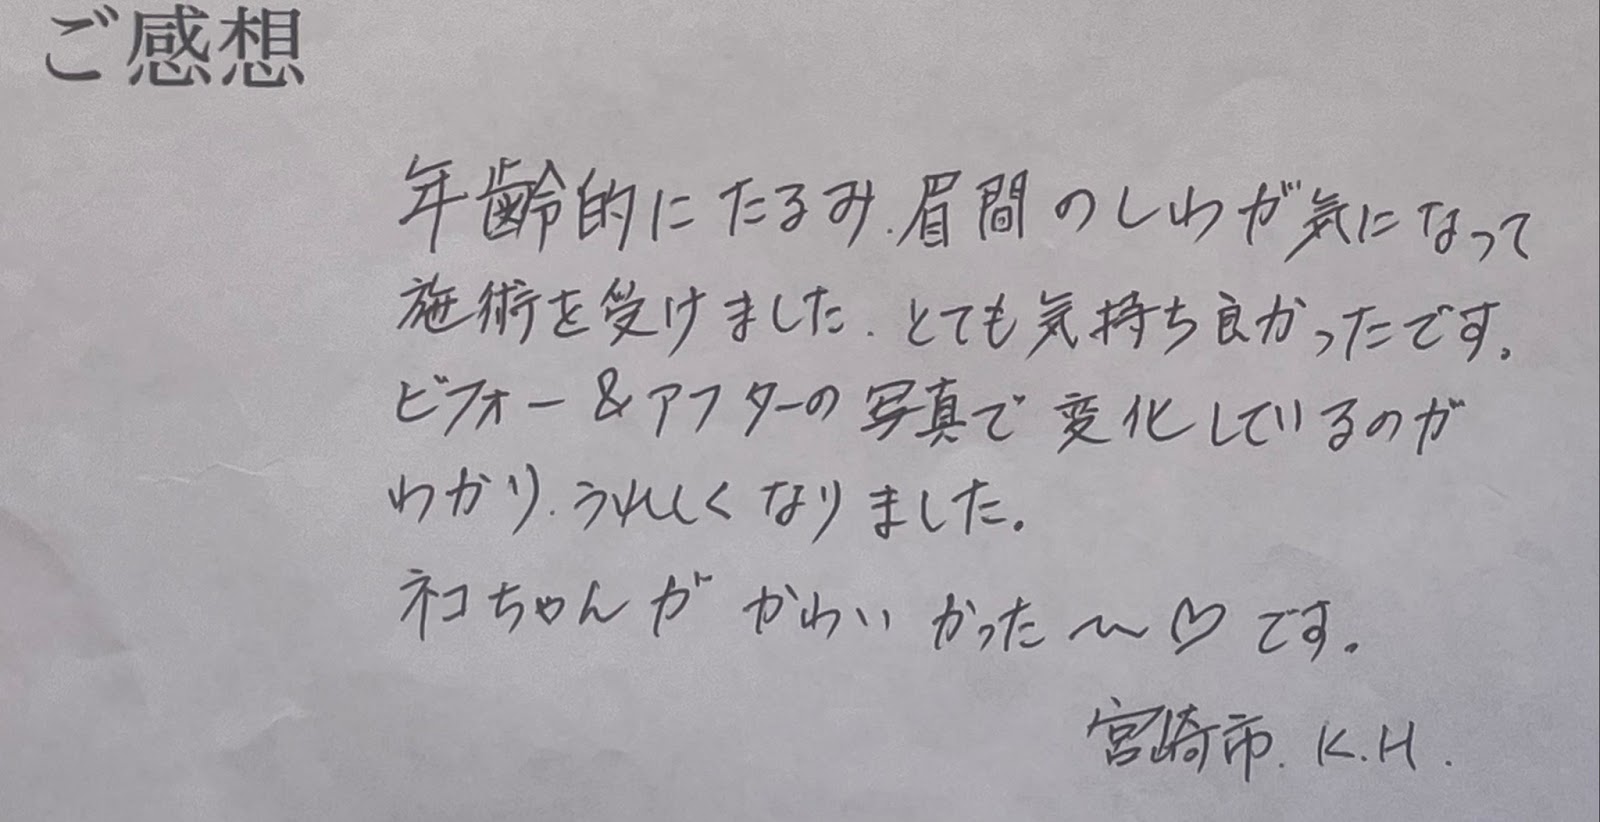 ご感想
年齢的にたるみ.眉間のしわが気になって
施術を受けました.とても気持ち良かったです。
ビフォー&アフターの写真で変化しているのが
わかり.うれしくなりました。
ネコちゃんがかわいかった〜♡です。
宮崎市.K.H.